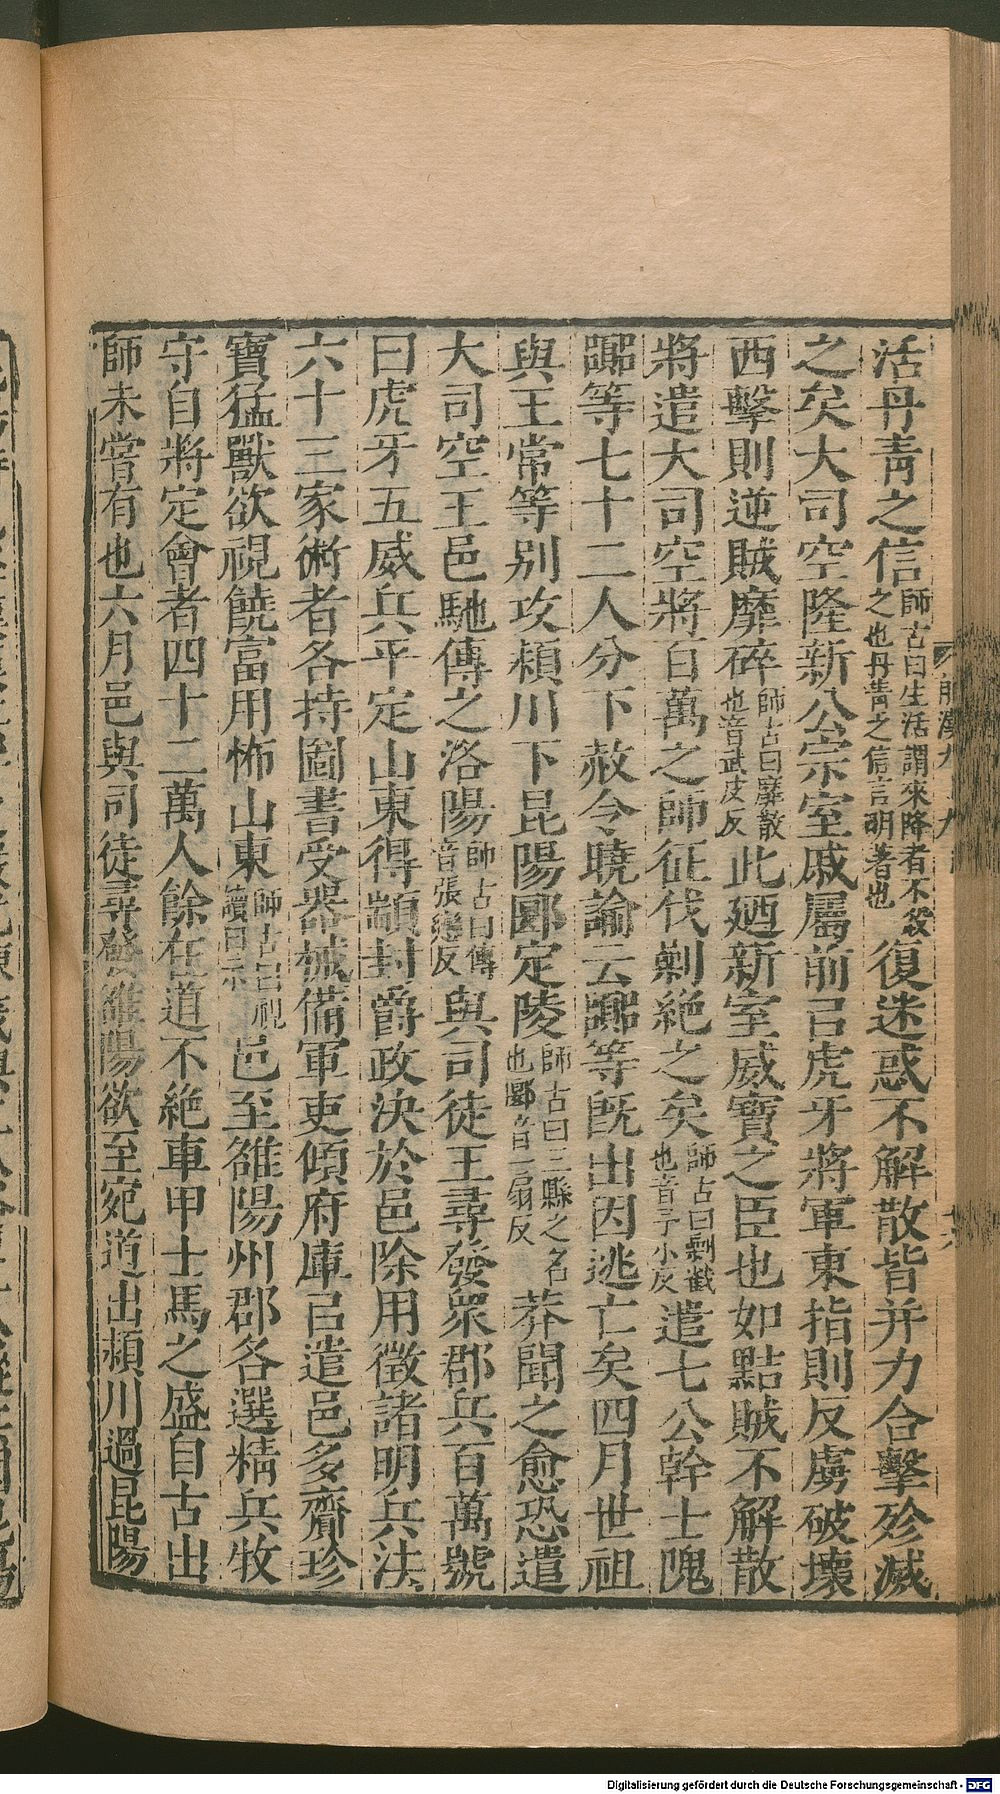 活丹青之信師古曰生活謂來降者不殺之也丹青之信言明著也復迷惑不解散皆并力合擊殄滅
之矣大司空隆新公宗室戚屬前㠯虎牙將軍東指則反虜破壞
西擊則逆賊靡碎師古曰靡散也音武皮反此廼新室威寶之臣也如點賊不解散
將遣大司空將百萬之師征伐剿絕之矣師古曰剿截也音子小反遣七公幹士隗
嚻等七十二人分下赦令曉諭云嚻等旣出因逃亡矣四月世祖
與王常等别攻潁川下昆陽郾定陵師古曰三縣之名也郾音一扇反莽聞之愈恐遣
大司空王邑馳傳之洛陽師古曰傳音張戀反與司徒王尋發衆郡兵百萬號
曰虎牙五威兵平定山東得顓封爵政決於邑除用徵諸明兵法
六十三家術者各持圖書受器械備軍吏傾府庫㠯遣邑多齎珍
寶猛獸欲視饒富用怖山東師古曰視讀曰示邑至雒陽州郡各選精兵牧
守自將定會者四十二萬人餘在道不絕車甲士馬之盛自古出
師未嘗有也六月邑與司徒尋發雒陽欲至宛道出潁川過昆陽
Digitalisierung gefördert durch die Deutsche Forschungsgemeinschaft - DFG